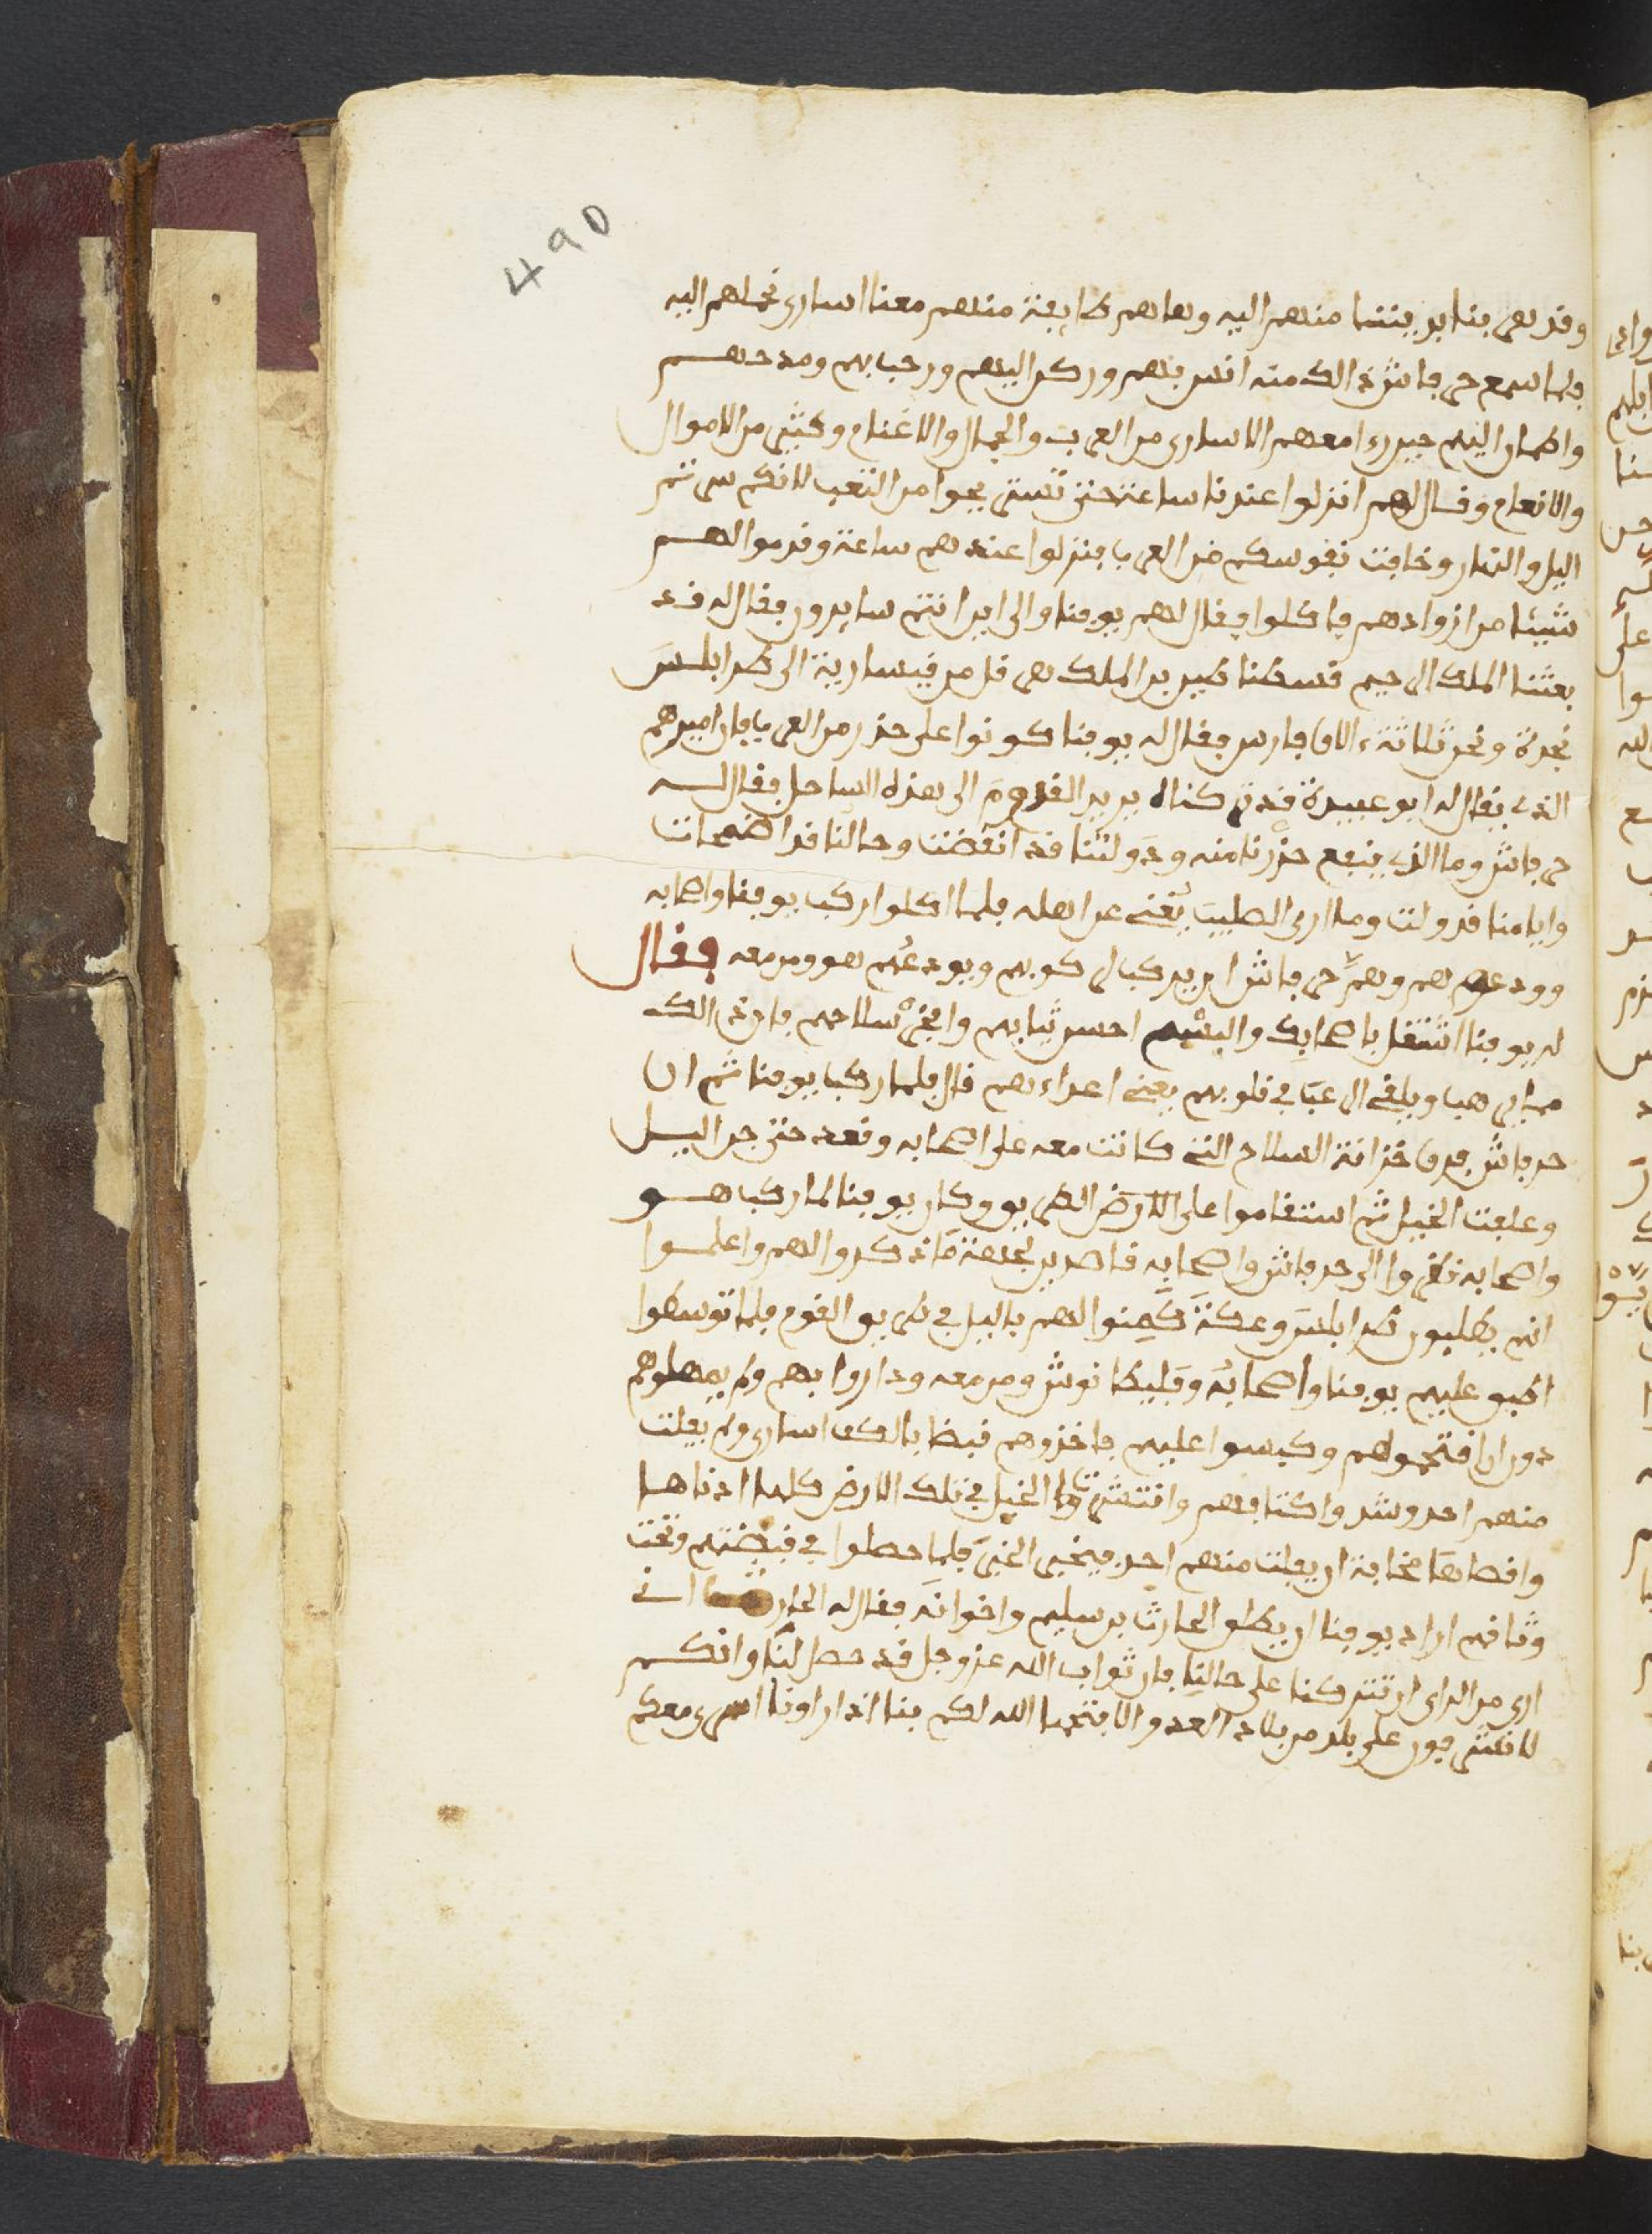 490
وقد هربنا بريتنا منهم اليه وهاهم طايفة منهم معنا اسارى نحملهم اليه
فلما سمع جرفاش ذالك منه انس بهم وركن اليهم ورحب بهم ومدحهم
واطمان اليهم حين رءا معهم الاسارى من العرب والجمال والاغنام وكثير من الاموال
والانعام وقال لهم انزلوا عندنا ساعة حتى تستريحوا من التعب لانكم سرتم
اليل والنهار وخافت نفوسكم من العرب فنزلوا عندهم ساعة وقدموا لهم
شيئا من ازوادهم فاكلوا فقال لهم يوفنا والى اين انتم سايرون فقال له قد
بعثنا الملك الى حيم قسطنطين بن الملك هرقل من قيسارية الى طرابلس
نجدة ونحن ثلاثة ءالاف فارس فقال له يوفنا كونوا على حذر من العرب فان اميرهم
الذي يقال له ابو عبيدة قد كنا يريد القدوم الى هذه الساحل فقال له
جرفاش وما الذي ينفع حذرنا منه ودولتنا قد انقضت وحالنا قد اضمحلت
وايامنا قد ولت وما ارى الصليب يغني عن اهله فلما اكلوا ركب يوفنا واصحابه
وودعهم وهم جرفاش ان يركب لركوبهم ويودعهم هو ومن معه فقال
له يوفنا اشتغل باصحابك والبسهم احسن ثيابهم وافخر سلاحهم فان ذالك
مما يرهب ويلقي الرعب في قلوبهم يعني اعداءهم قال فلما ركب يوفنا ثم ان
جرفاش فرق خزانة السلاح التي كانت معه على اصحابه وقعد حتى جن اليل
وعلفت الخيل ثم استقاموا على الارض الطريق وكان يوفنا لما ركب هو
واصحابه نظروا الى جرفاش واصحابه قاصدين لجهة ما ذكروا لهم واعلموا
انهم يطلبون طرابلس وعكة كمنوا لهم باليل في طريق القوم فلما توسطوا
اطبق عليهم يوفنا واصحابه وفليطانوش ومن معه وداروا بهم ولم يمهلوهم
دون ان اقتحموهم وكبسوا عليهم فاخذوهم قبضا بالكف اسارى ولم يفلت
منهم احد وشدوا كتافهم وانتشرت الخيل في تلك الارض كلها ادناها
واقصاها مخافة ان يفلت منهم احد فيخبر الخبر فلما حصلوا في قبضتهم وتحت
وثاقهم اراد يوفنا ان يطلق الحارث بن سليم واخوانه فقال له الحارث اني
ارى من الراي ان تتركنا على حالنا فان ثواب الله عز وجل قد حصل لنا وانكم
لا تشرفون على بلد من بلاد العدو الا فتحها الله لكم بنا اذا راونا اسرى معكم